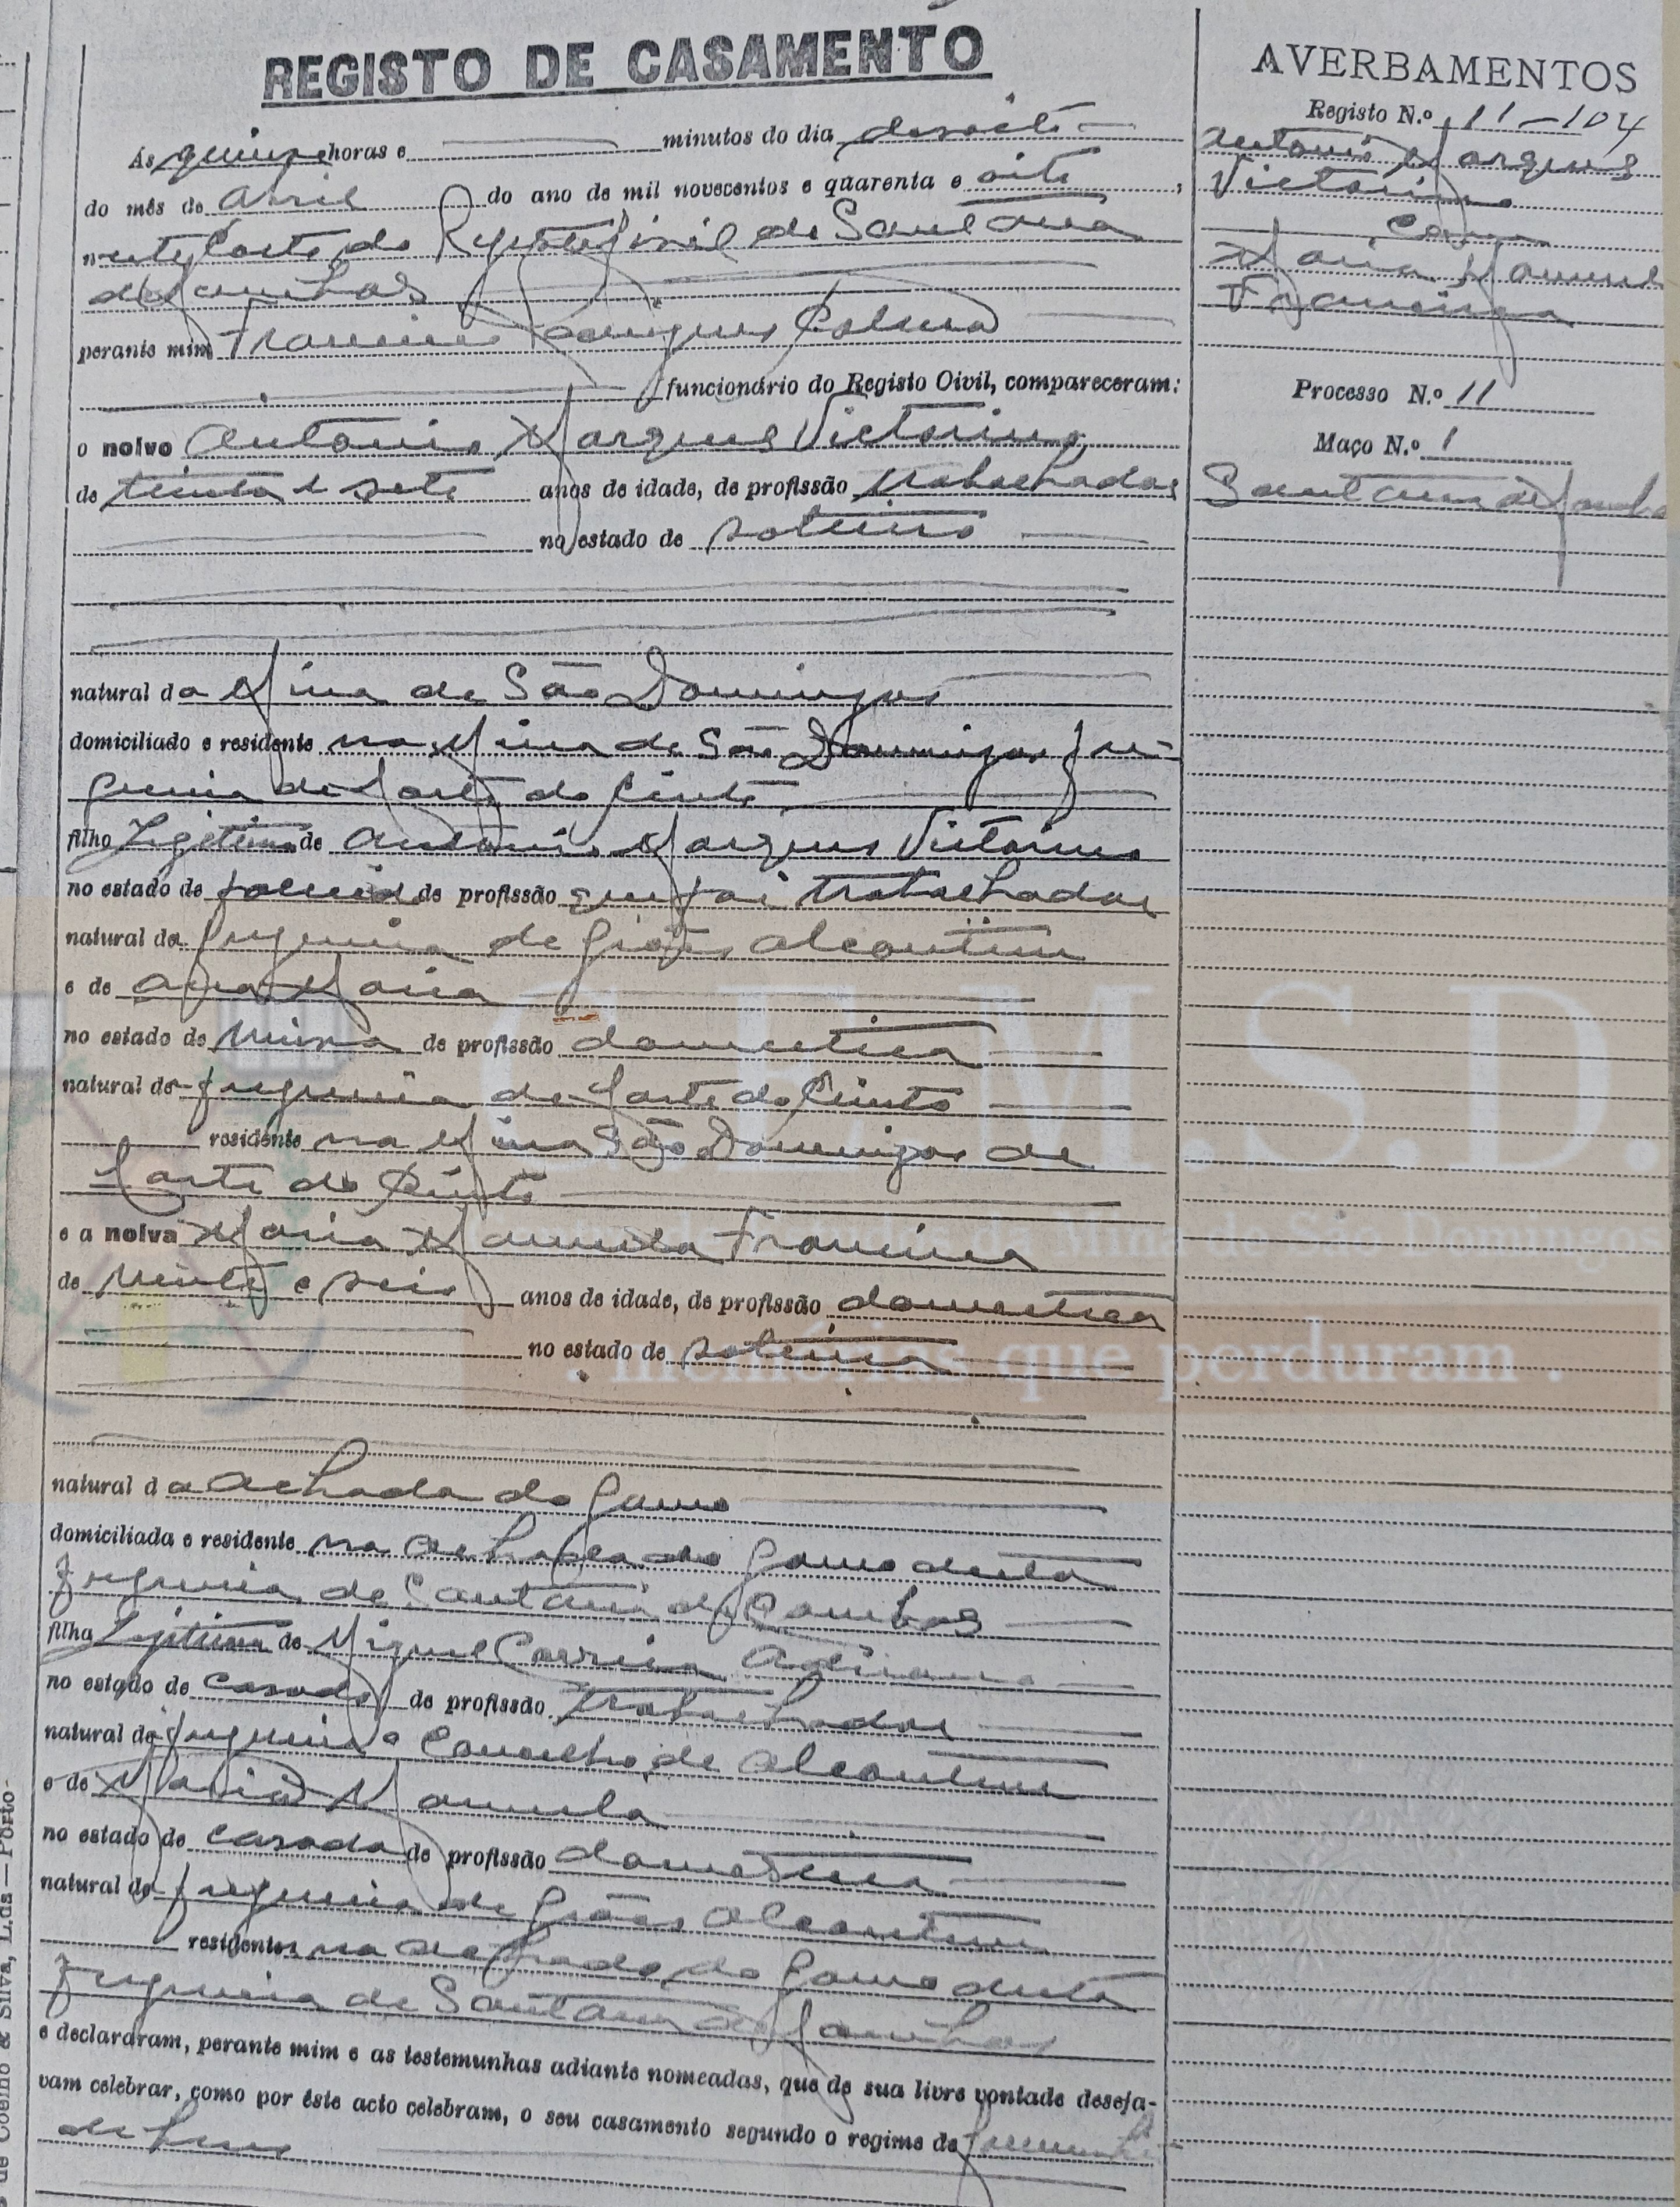 REGISTO DE CASAMENTO
Ás quinze horas e minutos do dia desoito
do mês de Abril do ano de mil novecentos e quarenta e oito,
neste Posto do Registo Civil de Sant'Ana
de Cambas
perante mim Francisco Rodrigues Palma
funcionário do Registo Civil, compareceram:
o noivo Antonio Marques Victorino
de trinta e sete anos de idade, de profissão trabalhador
no estado de solteiro
natural da Mina de São Domingos
domiciliado e residente na Mina de São Domingos fre-
guesia de Corte do Pinto
filho Legitimo de Antonio Marques Victorino
no estado de de profissão que foi trabalhador
natural da freguesia de Giões Alcoutim
e de Ana Maria
no estado de viuva de profissão domestica
natural da freguesia de Corte do Pinto
residente na Mina São Domingos de
Corte do Pinto
e a noiva Maria Manuela Francisca
de vinte e seis anos de idade, de profissão domestica
no estado de solteira
natural da Achada do Gamo
domiciliada e residente na Achada do Gamo desta
freguesia de Santana de Cambas
filha Legitima de Miguel Correia
no estado de casado de profissão trabalhador
natural da freguesia e Concelho de Alcoutim
e de Maria Manuela
no estado de casada de profissão domestica
natural da freguesia de Giões Alcoutim
residentes na Achada do Gamo desta
freguesia de Santana de Cambas
e declararam, perante mim e as testemunhas adiante nomeadas, que de sua livre vontade deseja-
vam celebrar, como por êste acto celebram, o seu casamento segundo o regime de comunhão
de bens
AVERBAMENTOS
Registo N.º 11-104
Antonio Marques
Victorino
Com
Maria Manuela
Francisca
Processo N.º 11
Maço N.º 1
Santana de Cambas
de Coelho & Silva, L.da — Porto-
C.E.M.S.D.
de São Domingos
. memórias que perduram .